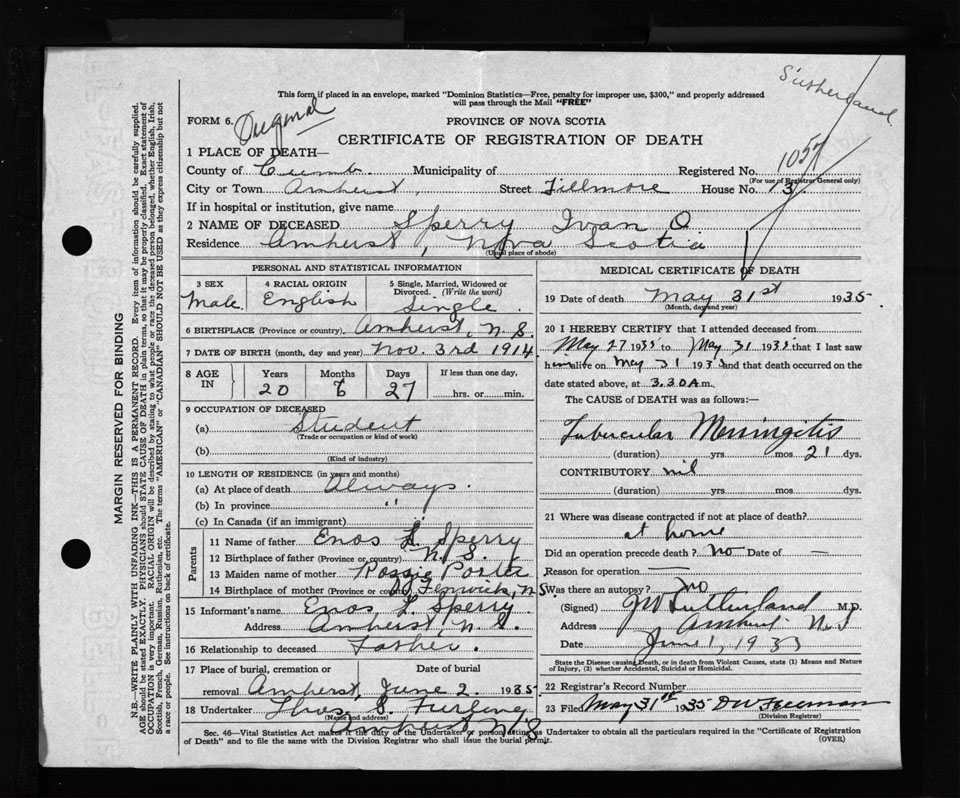 Sutherland
This form if placed in an envelope, marked "Dominion Statistics—Free, penalty for improper use, $300," and properly addressed
will pass through the Mail "FREE"
FORM 6.
PROVINCE OF NOVA SCOTIA
CERTIFICATE OF REGISTRATION OF DEATH
1 PLACE OF DEATH—
County of Cumb. Municipality of Registered No. 1057
(For use of Registrar General only)
City or Town Amherst, Street Fillmore House No. 13
If in hospital or institution, give name
2 NAME OF DECEASED Sperry Ivan O.
Residence Amherst, Nova Scotia
(Usual place of abode)
PERSONAL AND STATISTICAL INFORMATION
3 SEX 4 RACIAL ORIGIN 5 Single, Married, Widowed or
Divorced. (Write the word)
Male English Single.
6 BIRTHPLACE (Province or country), Amherst, N.S.
7 DATE OF BIRTH (month, day and year) Nov. 3rd 1914
8 AGE IN Years Months Days If less than one day,
20 6 27 hrs. or min.
9 OCCUPATION OF DECEASED
(a) Student
(Trade or occupation or kind of work)
(b)
(Kind of industry)
10 LENGTH OF RESIDENCE (in years and months)
(a) At place of death Always.
(b) In province "
(c) In Canada (if an immigrant)
Parents
11 Name of father Enos L. Sperry
12 Birthplace of father (Province or country) N.S.
13 Maiden name of mother Porter
14 Birthplace of mother (Province or country) Fenwick, N.S
15 Informant's name Enos L. Sperry
Address Amherst, N.S.
16 Relationship to deceased Father.
17 Place of burial, cremation or Date of burial
removal Amherst, June 2. 1935.
18 Undertaker Thos. S. Furlong
(Name and address)
Amherst N.S
MEDICAL CERTIFICATE OF DEATH
19 Date of death May 31st 1935.
(Month, day and year)
20 I HEREBY CERTIFY that I attended deceased from
May 27 1935 to May 31 1935 that I last saw
him alive on May 31 1935 and that death occurred on the
date stated above, at 3.30 A.m.
The CAUSE of DEATH was as follows:—
Tubercular Meningitis
(duration) yrs mos 21 dys.
CONTRIBUTORY nil
(duration) yrs. mos. dys.
21 Where was disease contracted if not at place of death?
at home
Did an operation precede death? No Date of —
Reason for operation —
Was there an autopsy? No
(Signed) J W Sutherland M.D.
Address Amherst N.S
Date June 1, 1935
State the Disease causing Death, or in death from Violent Causes, state (1) Means and Nature
of Injury, (2) whether Accidental, Suicidal or Homicidal.
22 Registrar's Record Number
23 Filed May 31st 1935 DW Freeman
(Division Registrar)
Sec. 46—Vital Statistics Act makes it the duty of the Undertaker or person acting as Undertaker to obtain all the particulars required in the "Certificate of Registration
of Death" and to file the same with the Division Registrar who shall issue the burial permit.
(OVER)
MARGIN RESERVED FOR BINDING
N.B.—WRITE PLAINLY WITH UNFADING INK—THIS IS A PERMANENT RECORD. Every item of information should be carefully supplied.
AGE should be stated EXACTLY. PHYSICIANS should STATE CAUSE OF DEATH in plain terms, so that it may be properly classified. Exact statement of
OCCUPATION is very important. RACIAL ORIGIN will be described by stating to what people or race the deceased person belonged, whether English, Irish,
Scottish, French, German, Russian, Ruthenian, etc. The terms "AMERICAN" or "CANADIAN" SHOULD NOT BE USED as they express citizenship but not
a race or people. See instructions on back of certificate.